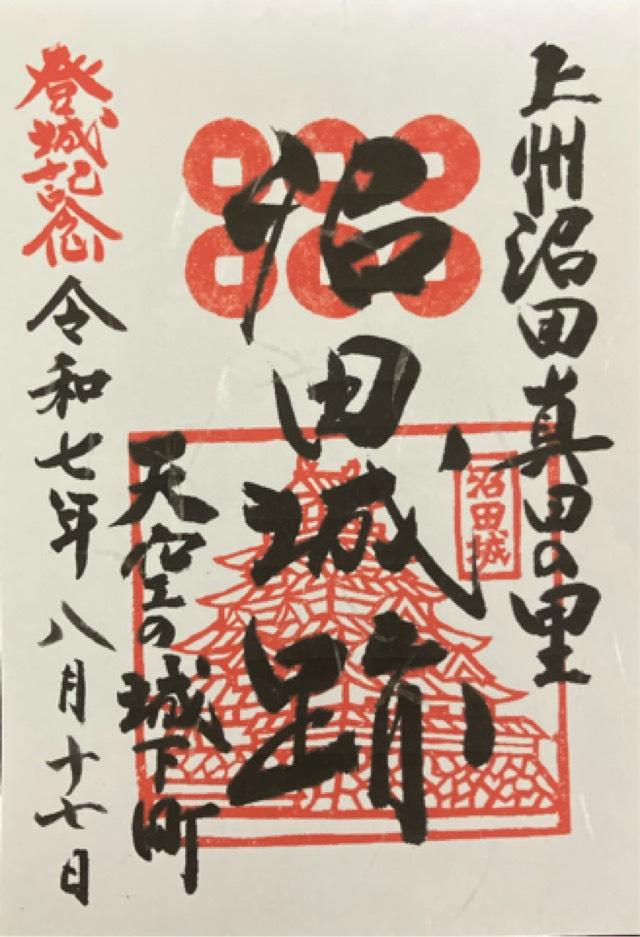 上州沼田真田の里
沼田城跡
沼田城
天空の城下町
登城記念
令和七年 八月十七日